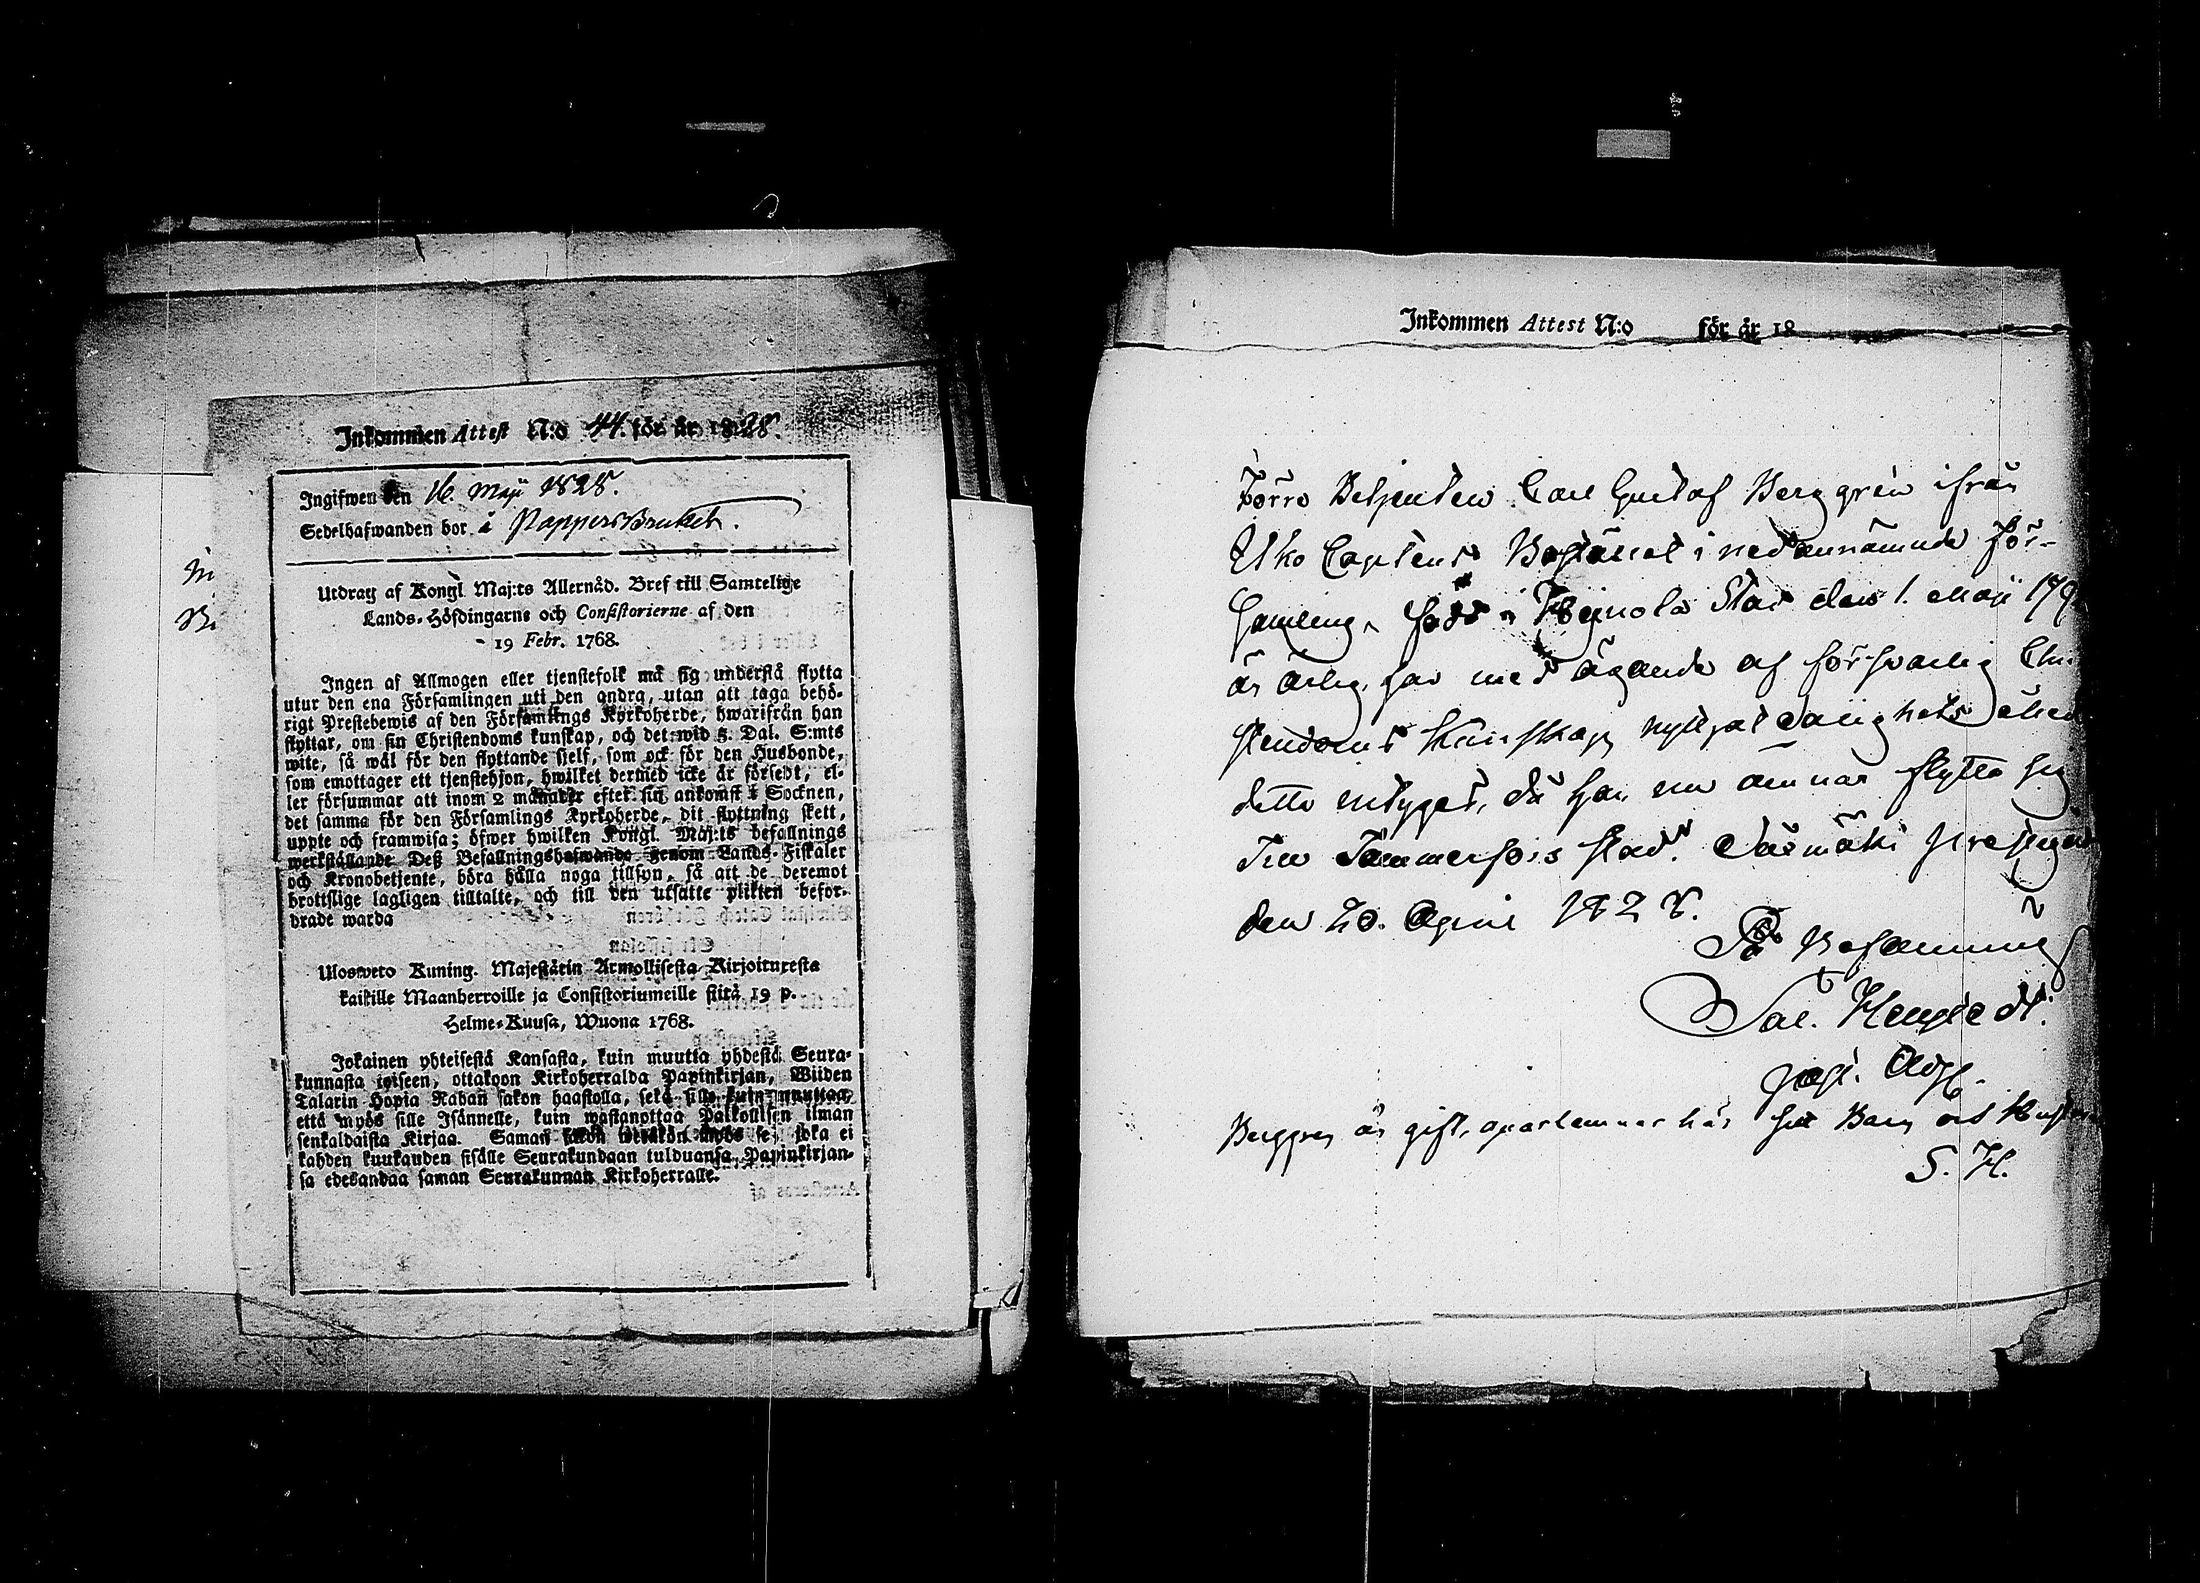 Inkommen Attest N:o 44. för år 1828.
Ingifwen den 16. Maji 1828.
Sedelhafwanden bor å PappersBruket.
Utdrag af Kongl. Maj:ts Allernåd. Bref till Samtelige
Lands-Höfdingarne och Consistorierne af den
19 Febr. 1768.
Ingen af Allmogen eller tjenstefolk må sig understå flytta
utur den ena Församlingen uti den andra, utan att taga behö-
rigt Prestebewis af den Församlings Kyrkoherde, hwarifrån han
flyttar, om sin Christendoms kunskap, och det wid 5. Dal. S:mts
wite, så wäl för den flyttande sjelf, som ock för den Husbonde,
som emottager ett tjenstehjon, hwilket dermed icke är försedt, el-
ler försummar att inom 2 månader efter sin ankomst i Socknen,
det samma för den Församlings Kyrkoherde, dit flyttning skett,
uppte och framwisa; öfwer hwilken Kongl. Maj:ts befallnings
werkställande Deß Befallningshafwande genom Lands-Fiskaler
och Kronobetjente, böra hålla noga tillsyn, så att de deremot
brottslige lagligen tilltalte, och till den utsatte plikten befor-
drade warda
Ulosweto Kuning. Majestätin Armollisesta Kirjoituxesta
kaikille Maanherroille ja Consistoriumeille siitä 19 p.
Helme-Kuusa, Wuona 1768.
Jokainen yhteisestä Kansasta, kuin muutta yhdestä Seura-
kunnasta toiseen, ottakoon Kirkoherralda Papinkirjan, Wiiden
Talarin Hopia Rahan sakon haastolla, sekä sille kuin muuttaa,
että myös sille Isännelle, kuin wastanottaa Palkollisen ilman
senkaldaista Kirjaa. Saman sakon wetäkön myös se, joka ei
kahden kuukauden sisälle Seurakundaan tulduansa Papinkirjan-
sa edesandaa saman Seurakunnan Kirkoherralle.
Inkommen Attest N:o för år 18
Förre Betjenten Carl Gustaf Berggrén ifrån
Uko Captens Bostället i nedannämnde för-
samling, född i Heinola Stad den 1. Maji 179
är ärlig, har med ägande af försvarlig Chri
stendoms Kunskap nyttjat Salighets
detta intygas, då han nu ämnar flytta sig
Till Tammerfors stad.
den 20. April 1828.
På Befallning
Sal. 
Berggren är gift, 
S. H.